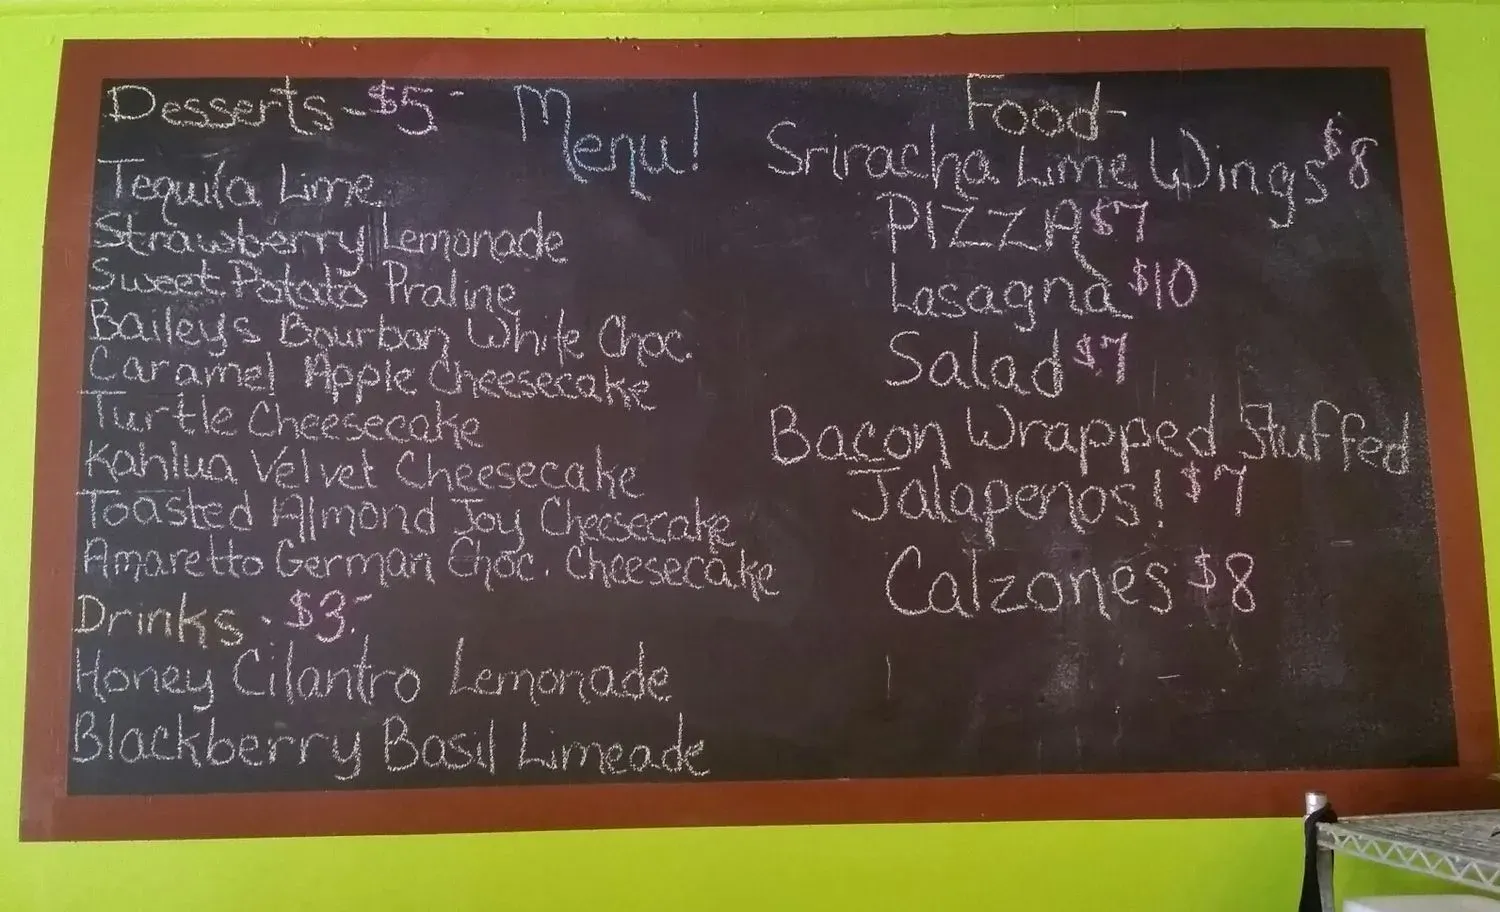 Menu!
Desserts - $5-
Tequila Lime
Strawberry Lemonade
Sweet Potato Praline
Bailey's Bourbon White Choc.
Caramel Apple Cheesecake
Turtle Cheesecake
Kahlua Velvet Cheesecake
Toasted Almond Joy Cheesecake
Amaretto German Choc. Cheesecake
Drinks - $3-
Honey Cilantro Lemonade
Blackberry Basil Limeade
Food-
Sriracha Lime Wings $8
PIZZA $7
Lasagna $10
Salad $7
Bacon Wrapped Stuffed
Jalapenos! $7
Calzones $8